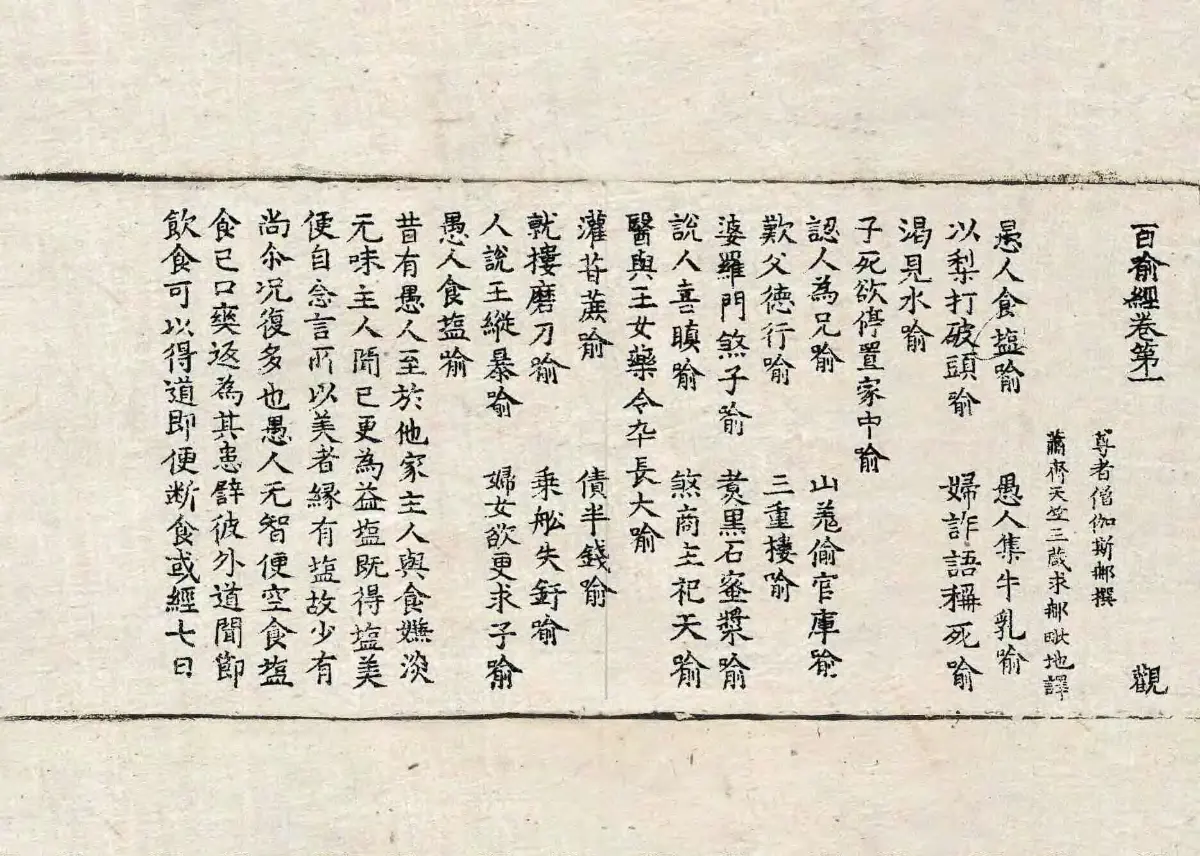 百喻經卷第一 觀
尊者僧伽斯那撰
蕭齊天竺三藏求那毗地譯
愚人食塩喻 愚人集牛乳喻
以梨打破頭喻 婦詐語稱死喻
渴見水喻
子死欲停置家中喻
認人為兄喻 山羌偷官庫喻
歎父德行喻 三重樓喻
婆羅門煞子喻 煑黒石蜜漿喻
說人喜瞋喻 煞商主祀天喻
醫與王女藥令卒長大喻
灌甘蔗喻 債半錢喻
就樓磨刀喻 乘舩失釪喻
人說王縱暴喻 婦女欲更求子喻
愚人食塩喻
昔有愚人至於他家主人與食嫌淡
无味主人聞已更為益塩既得塩美
便自念言所以美者緣有塩故少有
尚尒況復多也愚人无智便空食塩
食已口爽返為其患譬彼外道聞節
飲食可以得道即便断食或經七日